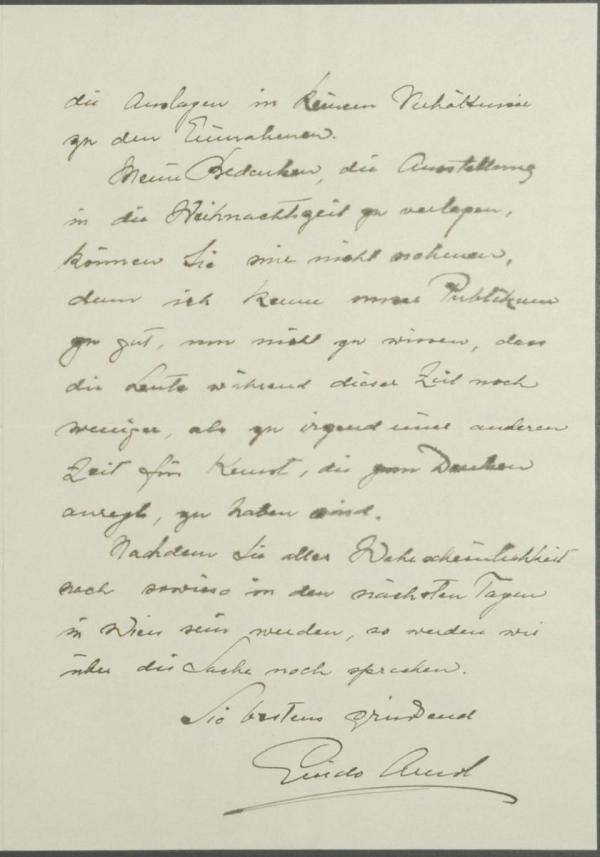 die Auslagen in keinem Verhältnisse
zu den Einnahmen.
Meine Bedenken, die Ausstellung
in die Weihnachtszeit zu verlegen,
können Sie mir nicht nehmen,
denn ich kenne unser Publikum
zu gut, um nicht zu wissen, dass
die Leute während dieser Zeit noch
weniger, als zu irgend einer anderen
Zeit für Kunst, die zum Denken
anregt, zu haben sind.
Nachdem Sie aller Wahrscheinlichkeit
nach sowieso in den nächsten Tagen
in Wien sein werden, so werden wir
über die Sache noch sprechen.
Sie bestens grüßend
Guido Arnot